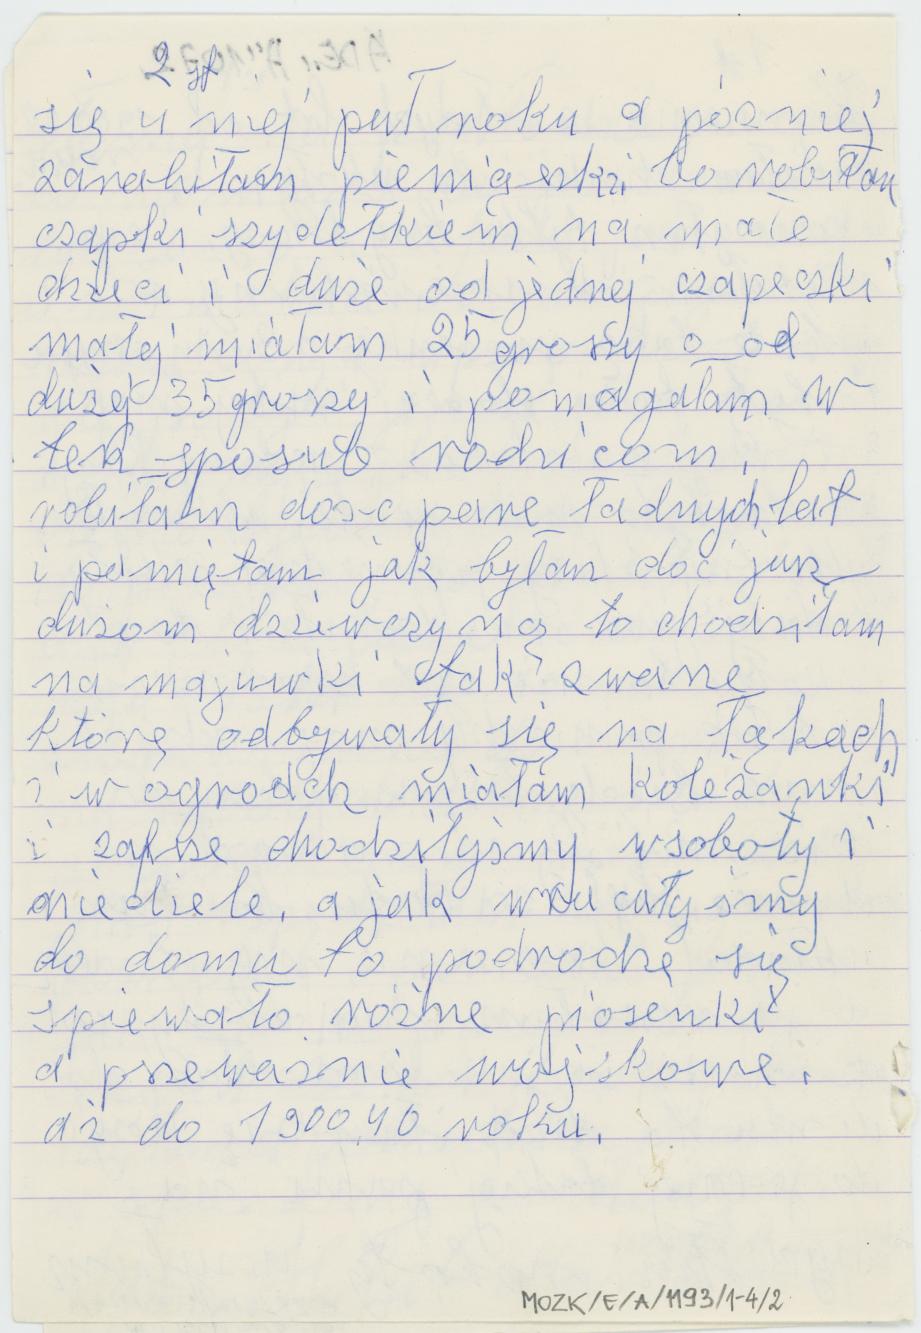 2 st
się u niej puł roku a pózniej
zarabiłam pieniąszki, bo robiłam
czapki szydełkiem na małe
dzieci i duże od jednej czapeczki
małej miałam 25 groszy o od
dużej 35 groszy i pomagałam w
ten sposub rodzicom,
robiłam dość parę ładnych lat
i pamiętam jak byłam doć jusz
dużom dziewczyną to chodziłam
na majuwki tak zwane
które odbywały się na łąkach
i w ogrodch miałam koleżanki
i zafsze chodziłyśmy wsoboty i
niedziele, a jak wrucałyśmy
do domu to podrodze się
spiewało różne piosenki
a przeważnie wojskowe.
aż do 190040 roku.
MOZK/E/A/1193/1-4/2